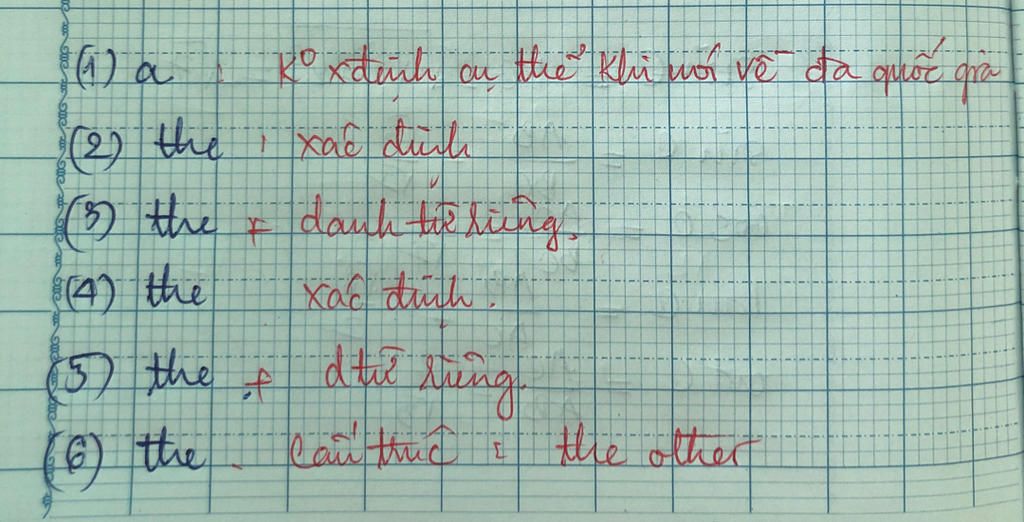 (1) a : Kº xđịnh cụ thể khi nói về đa quốc gia
(2) the : xác định
(3) the + danh từ riêng.
(4) the xác định.
(5) the + dtừ riêng.
(6) the - Cấu trúc : the other